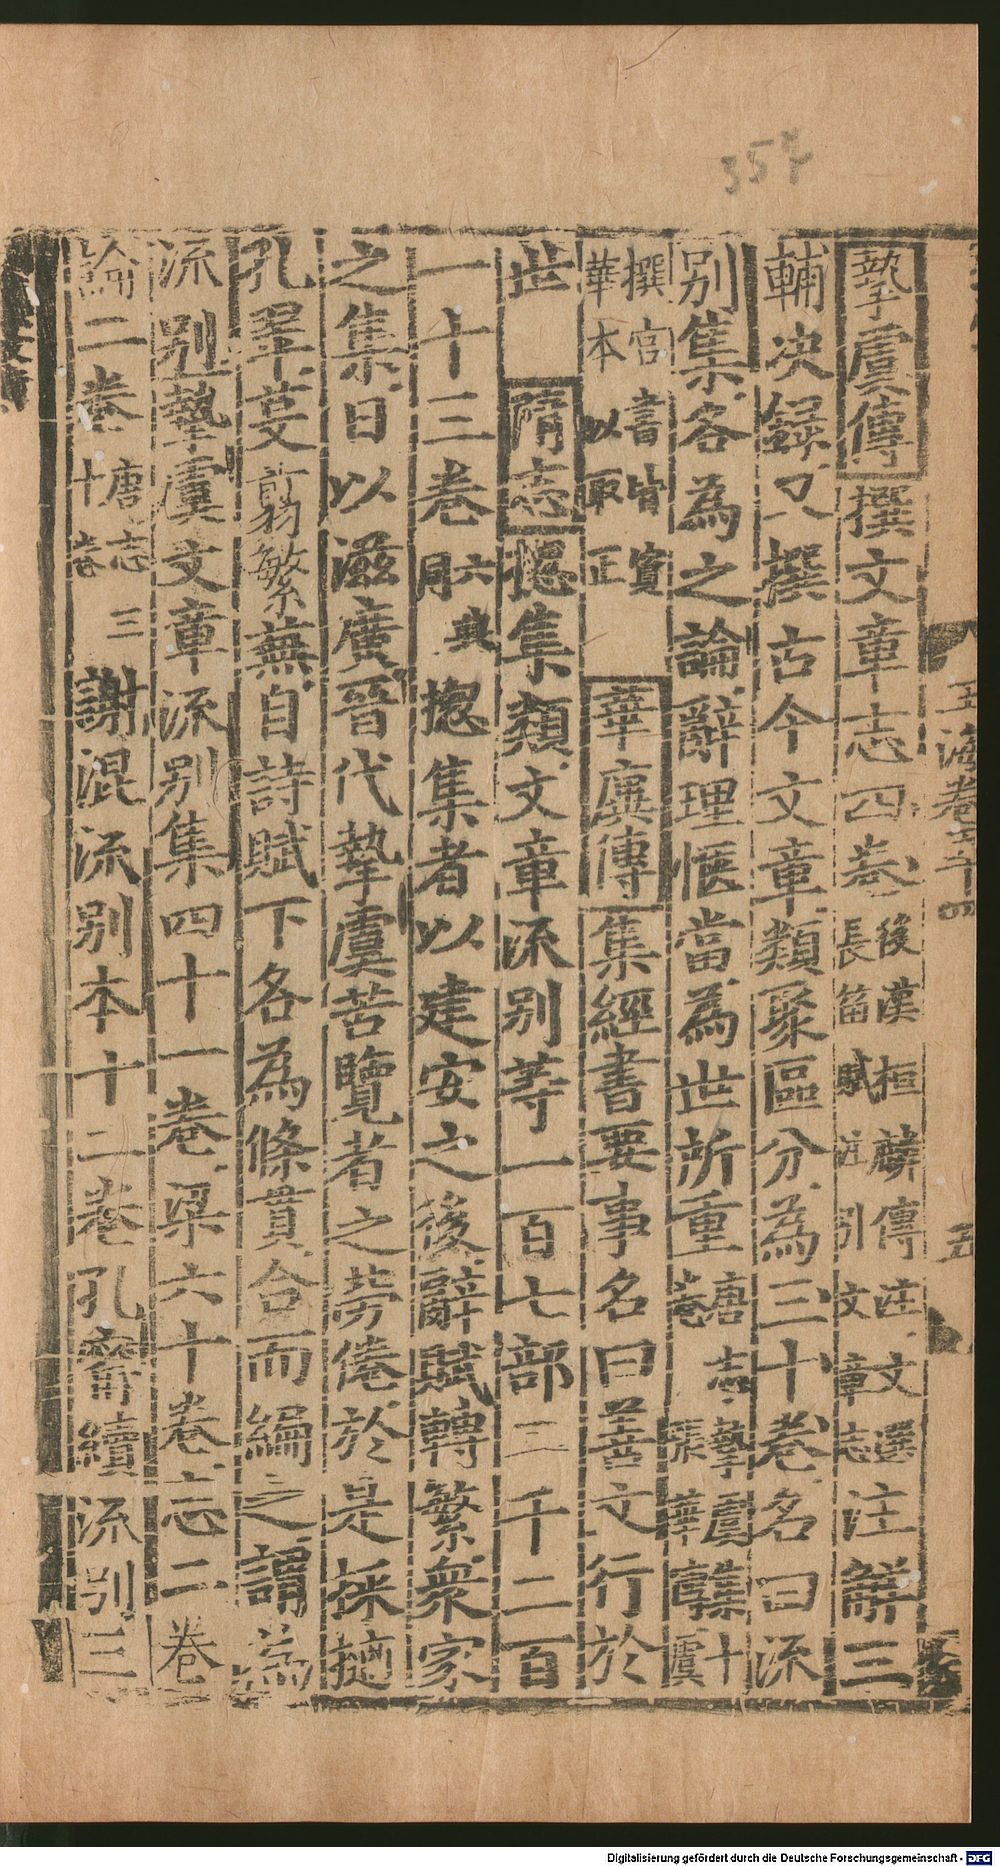 357
玉海卷五十四
五
摯虞傳撰文章志四卷後漢桓麟傳注文選長笛賦注引文章志注解三
輔決録又撰古今文章類聚區分為三十卷名曰流
別集各為之論辭理愜當為世所重唐志摯虞十卷張華譔虞
撰官書皆資華本以取正華廙傳集經書要事名曰善文行於
世隋志揔集類文章流別等一百七部二千二百
一十三卷六典同揔集者以建安之後辭賦轉繁衆家
之集日以滋廣晉代摯虞苦覽者之勞倦於是採擿
孔翠芟剪繁蕪自詩賦下各為條貫合而編之謂為
流別摯虞文章流別集四十一卷梁六十卷志二卷
論二卷唐志三十卷謝混流別本十二卷孔甯續流別三
Digitalisierung gefördert durch die Deutsche Forschungsgemeinschaft - DFG